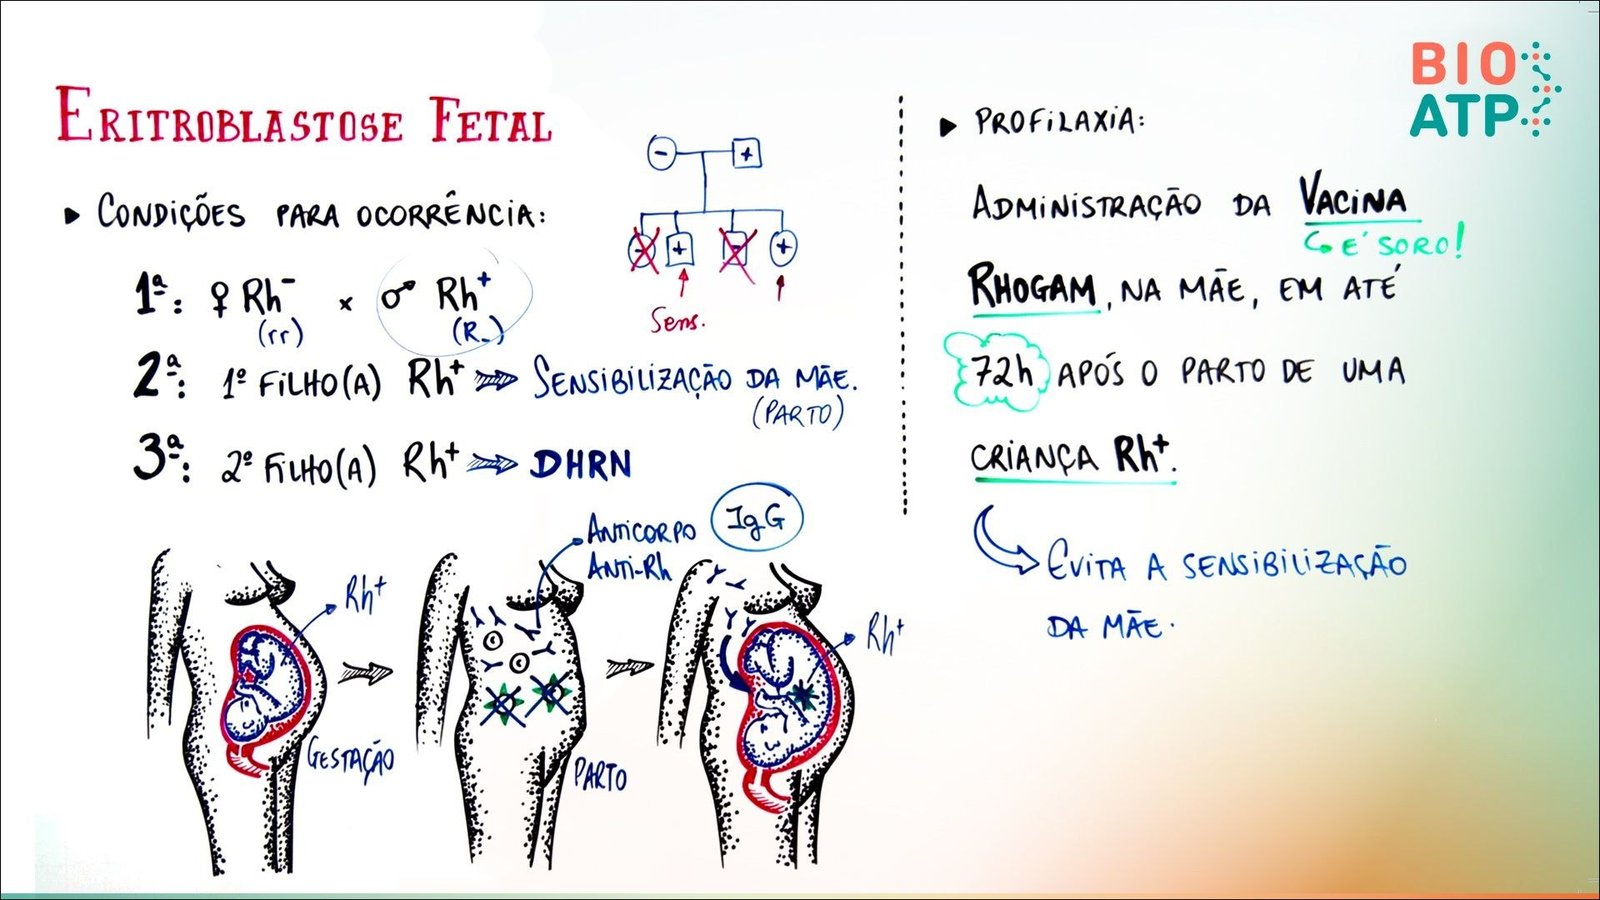 ERITROBLASTOSE FETAL
► CONDIÇÕES PARA OCORRÊNCIA:
1ª: ♀ Rh⁻ × ♂ Rh⁺
(rr) (R_)
2ª: 1º FILHO(A) Rh⁺ ⇒ SENSIBILIZAÇÃO DA MÃE.
(PARTO)
3ª: 2º FILHO(A) Rh⁺ ⇒ DHRN
- +
- + - +
Sens.
Rh⁺
GESTAÇÃO
ANTICORPO
ANTI-Rh
PARTO
IgG
Rh⁺
► PROFILAXIA:
ADMINISTRAÇÃO DA VACINA
↪ É SORO!
RHOGAM, NA MÃE, EM ATÉ
72h APÓS O PARTO DE UMA
CRIANÇA Rh⁺.
EVITA A SENSIBILIZAÇÃO
DA MÃE.
BIO
ATP